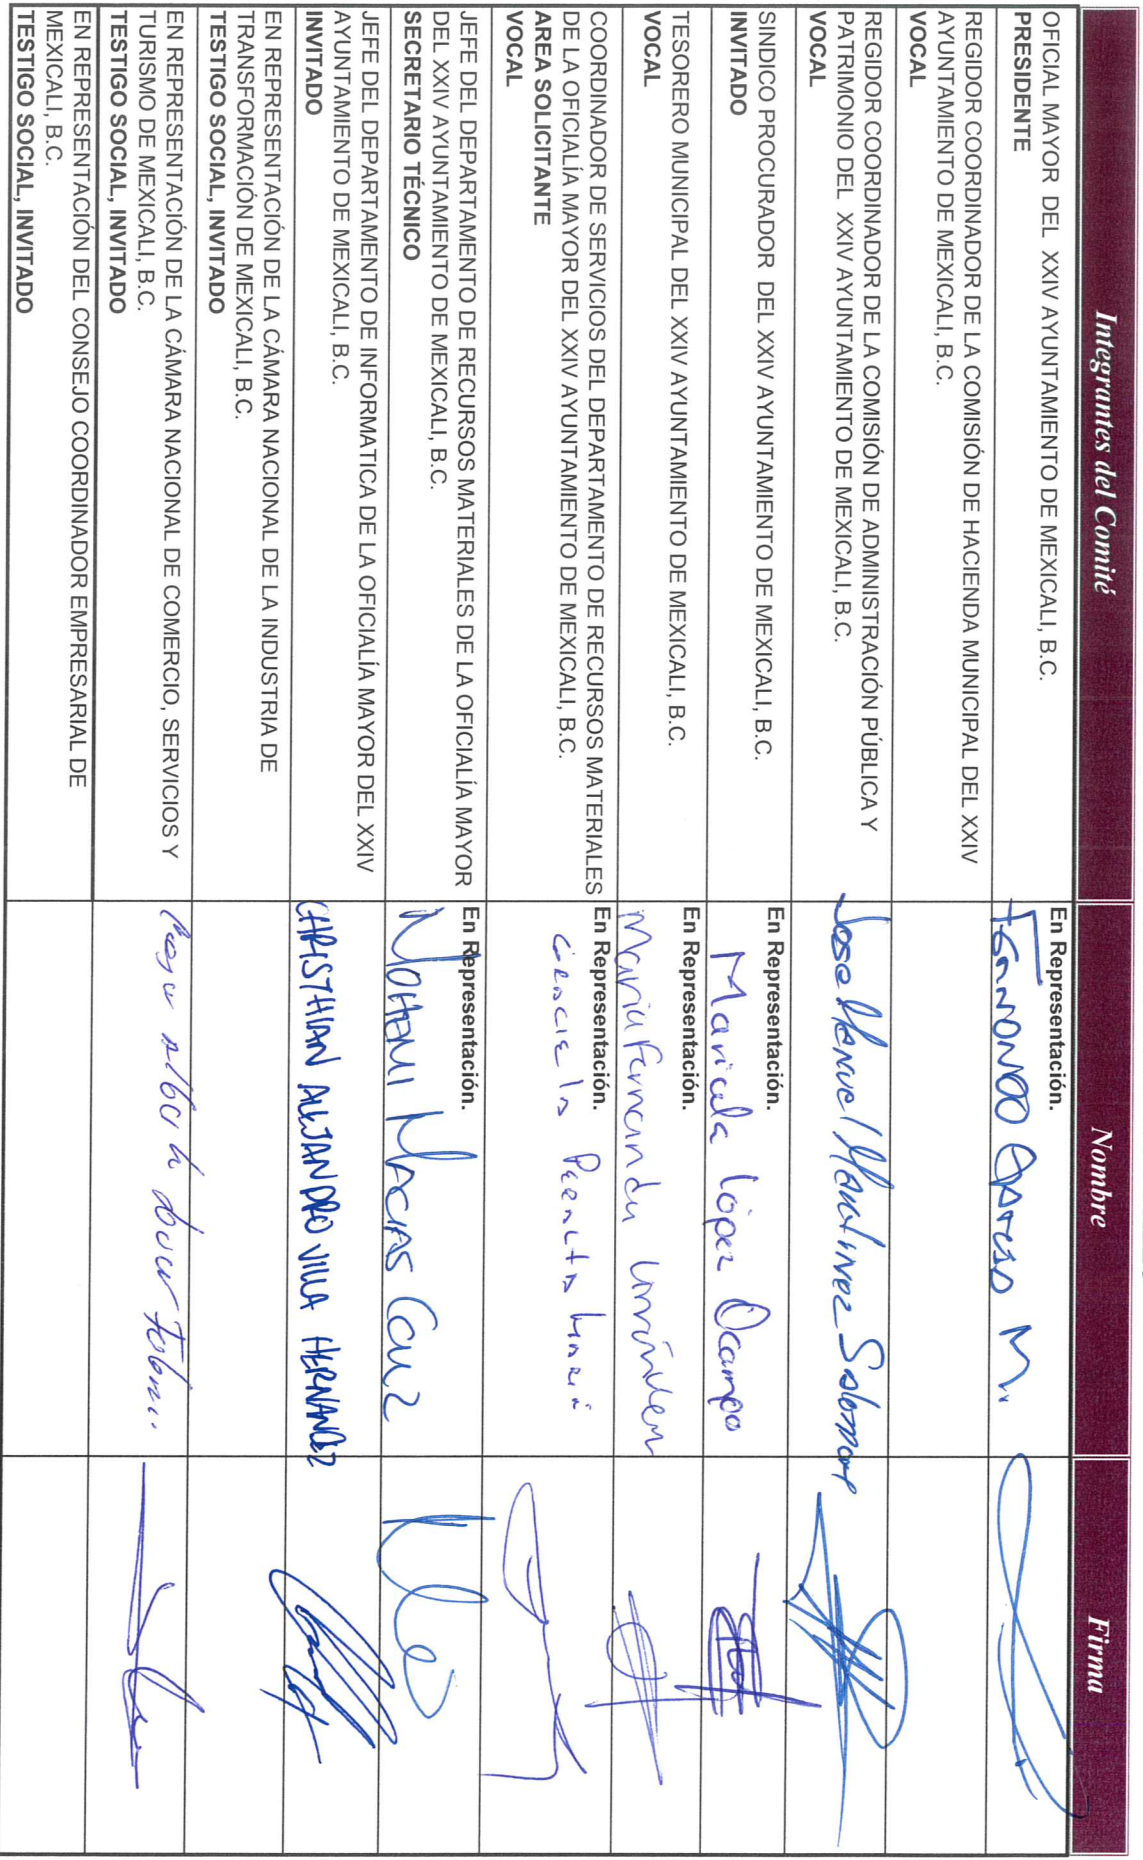 Integrantes del Comité
Nombre
Firma
OFICIAL MAYOR DEL XXIV AYUNTAMIENTO DE MEXICALI, B.C.
PRESIDENTE
En Representación.
M.
REGIDOR COORDINADOR DE LA COMISIÓN DE HACIENDA MUNICIPAL DEL XXIV
AYUNTAMIENTO DE MEXICALI, B.C.
VOCAL
REGIDOR COORDINADOR DE LA COMISIÓN DE ADMINISTRACIÓN PÚBLICA Y
PATRIMONIO DEL XXIV AYUNTAMIENTO DE MEXICALI, B.C.
VOCAL
Jose Manuel Martinez Salomon
SINDICO PROCURADOR DEL XXIV AYUNTAMIENTO DE MEXICALI, B.C.
INVITADO
En Representación.
Maricela López Ocampo
TESORERO MUNICIPAL DEL XXIV AYUNTAMIENTO DE MEXICALI, B.C.
VOCAL
En Representación.
Maria Fernanda
COORDINADOR DE SERVICIOS DEL DEPARTAMENTO DE RECURSOS MATERIALES
DE LA OFICIALÍA MAYOR DEL XXIV AYUNTAMIENTO DE MEXICALI, B.C.
AREA SOLICITANTE
VOCAL
En Representación.
JEFE DEL DEPARTAMENTO DE RECURSOS MATERIALES DE LA OFICIALÍA MAYOR
DEL XXIV AYUNTAMIENTO DE MEXICALI, B.C.
SECRETARIO TÉCNICO
En Representación.
NOHEMI MACIAS
JEFE DEL DEPARTAMENTO DE INFORMATICA DE LA OFICIALÍA MAYOR DEL XXIV
AYUNTAMIENTO DE MEXICALI, B.C.
INVITADO
CHRISTHIAN ALEJANDRO VILLA HERNANDEZ
EN REPRESENTACIÓN DE LA CÁMARA NACIONAL DE LA INDUSTRIA DE
TRANSFORMACIÓN DE MEXICALI, B.C.
TESTIGO SOCIAL, INVITADO
EN REPRESENTACIÓN DE LA CÁMARA NACIONAL DE COMERCIO, SERVICIOS Y
TURISMO DE MEXICALI, B.C.
TESTIGO SOCIAL, INVITADO
EN REPRESENTACIÓN DEL CONSEJO COORDINADOR EMPRESARIAL DE
MEXICALI, B.C.
TESTIGO SOCIAL, INVITADO